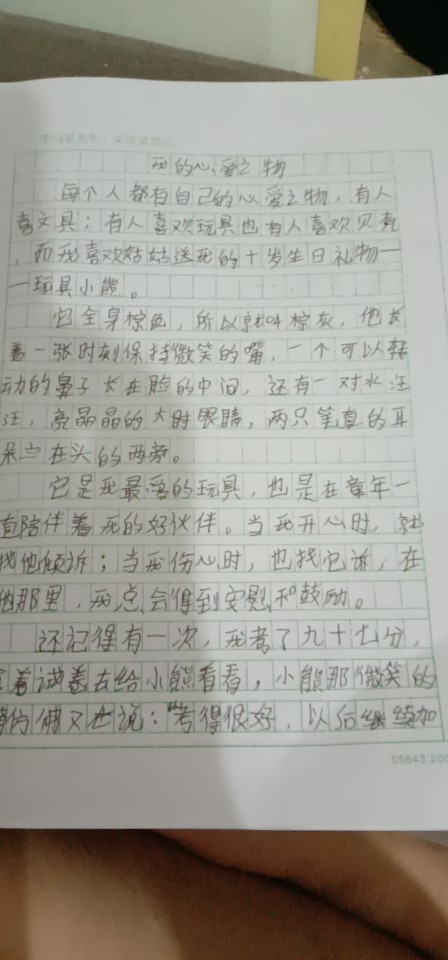 我的心爱之物
每个人都有自己的心爱之物，有人
喜文具；有人喜欢玩具也有人喜欢贝壳
，而我喜欢姑姑送我的十岁生日礼物一
一玩具小熊。
它全身棕色，所以就叫棕灰，他长
着一张时刻保持微笑的嘴，一个可以转
动的鼻子长在脸的中间，还有一对水汪
汪，亮晶晶的大时眼睛，两只笔直的耳
朵立在头的两旁。
它是我最爱的玩具，也是在童年一
直陪伴着我的好伙伴。当我开心时，就
找他倾诉；当我伤心时，也找它诉，在
他那里，我总会得到安慰和鼓励。
还记得有一次，我考了九十七分，
拿着试卷去给小熊看看，小熊那微笑的
仿佛又在说：“考得很好，以后继续加
05643.200